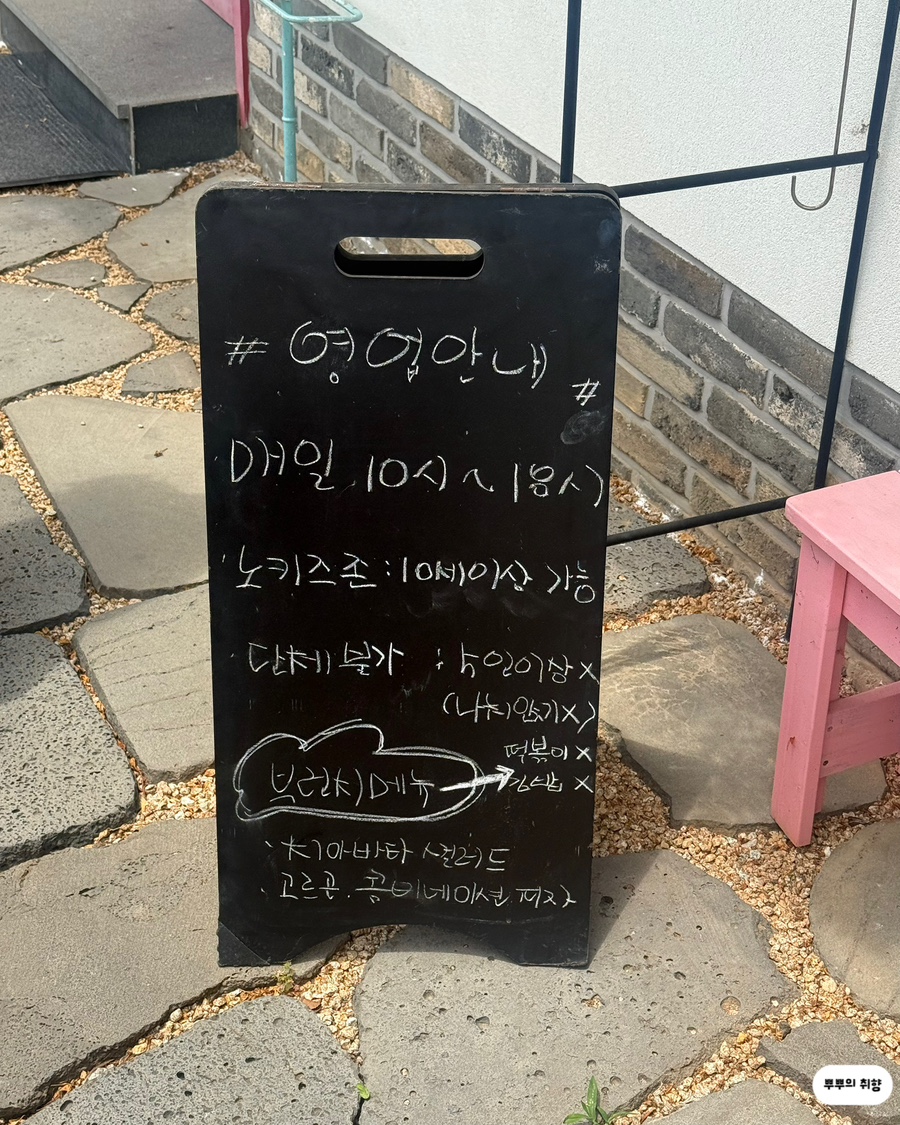 # 영업안내 #
매일 10시 ~ 18시
노키즈존 : 10세이상 가능
단체불가 : 5인이상 x
(나눠앉기x)
떡볶이 x
브런치메뉴 → 김밥 x
· 치아바타 샐러드
· 고르곤. 콤비네이션 피자
뿌뿌의 취향